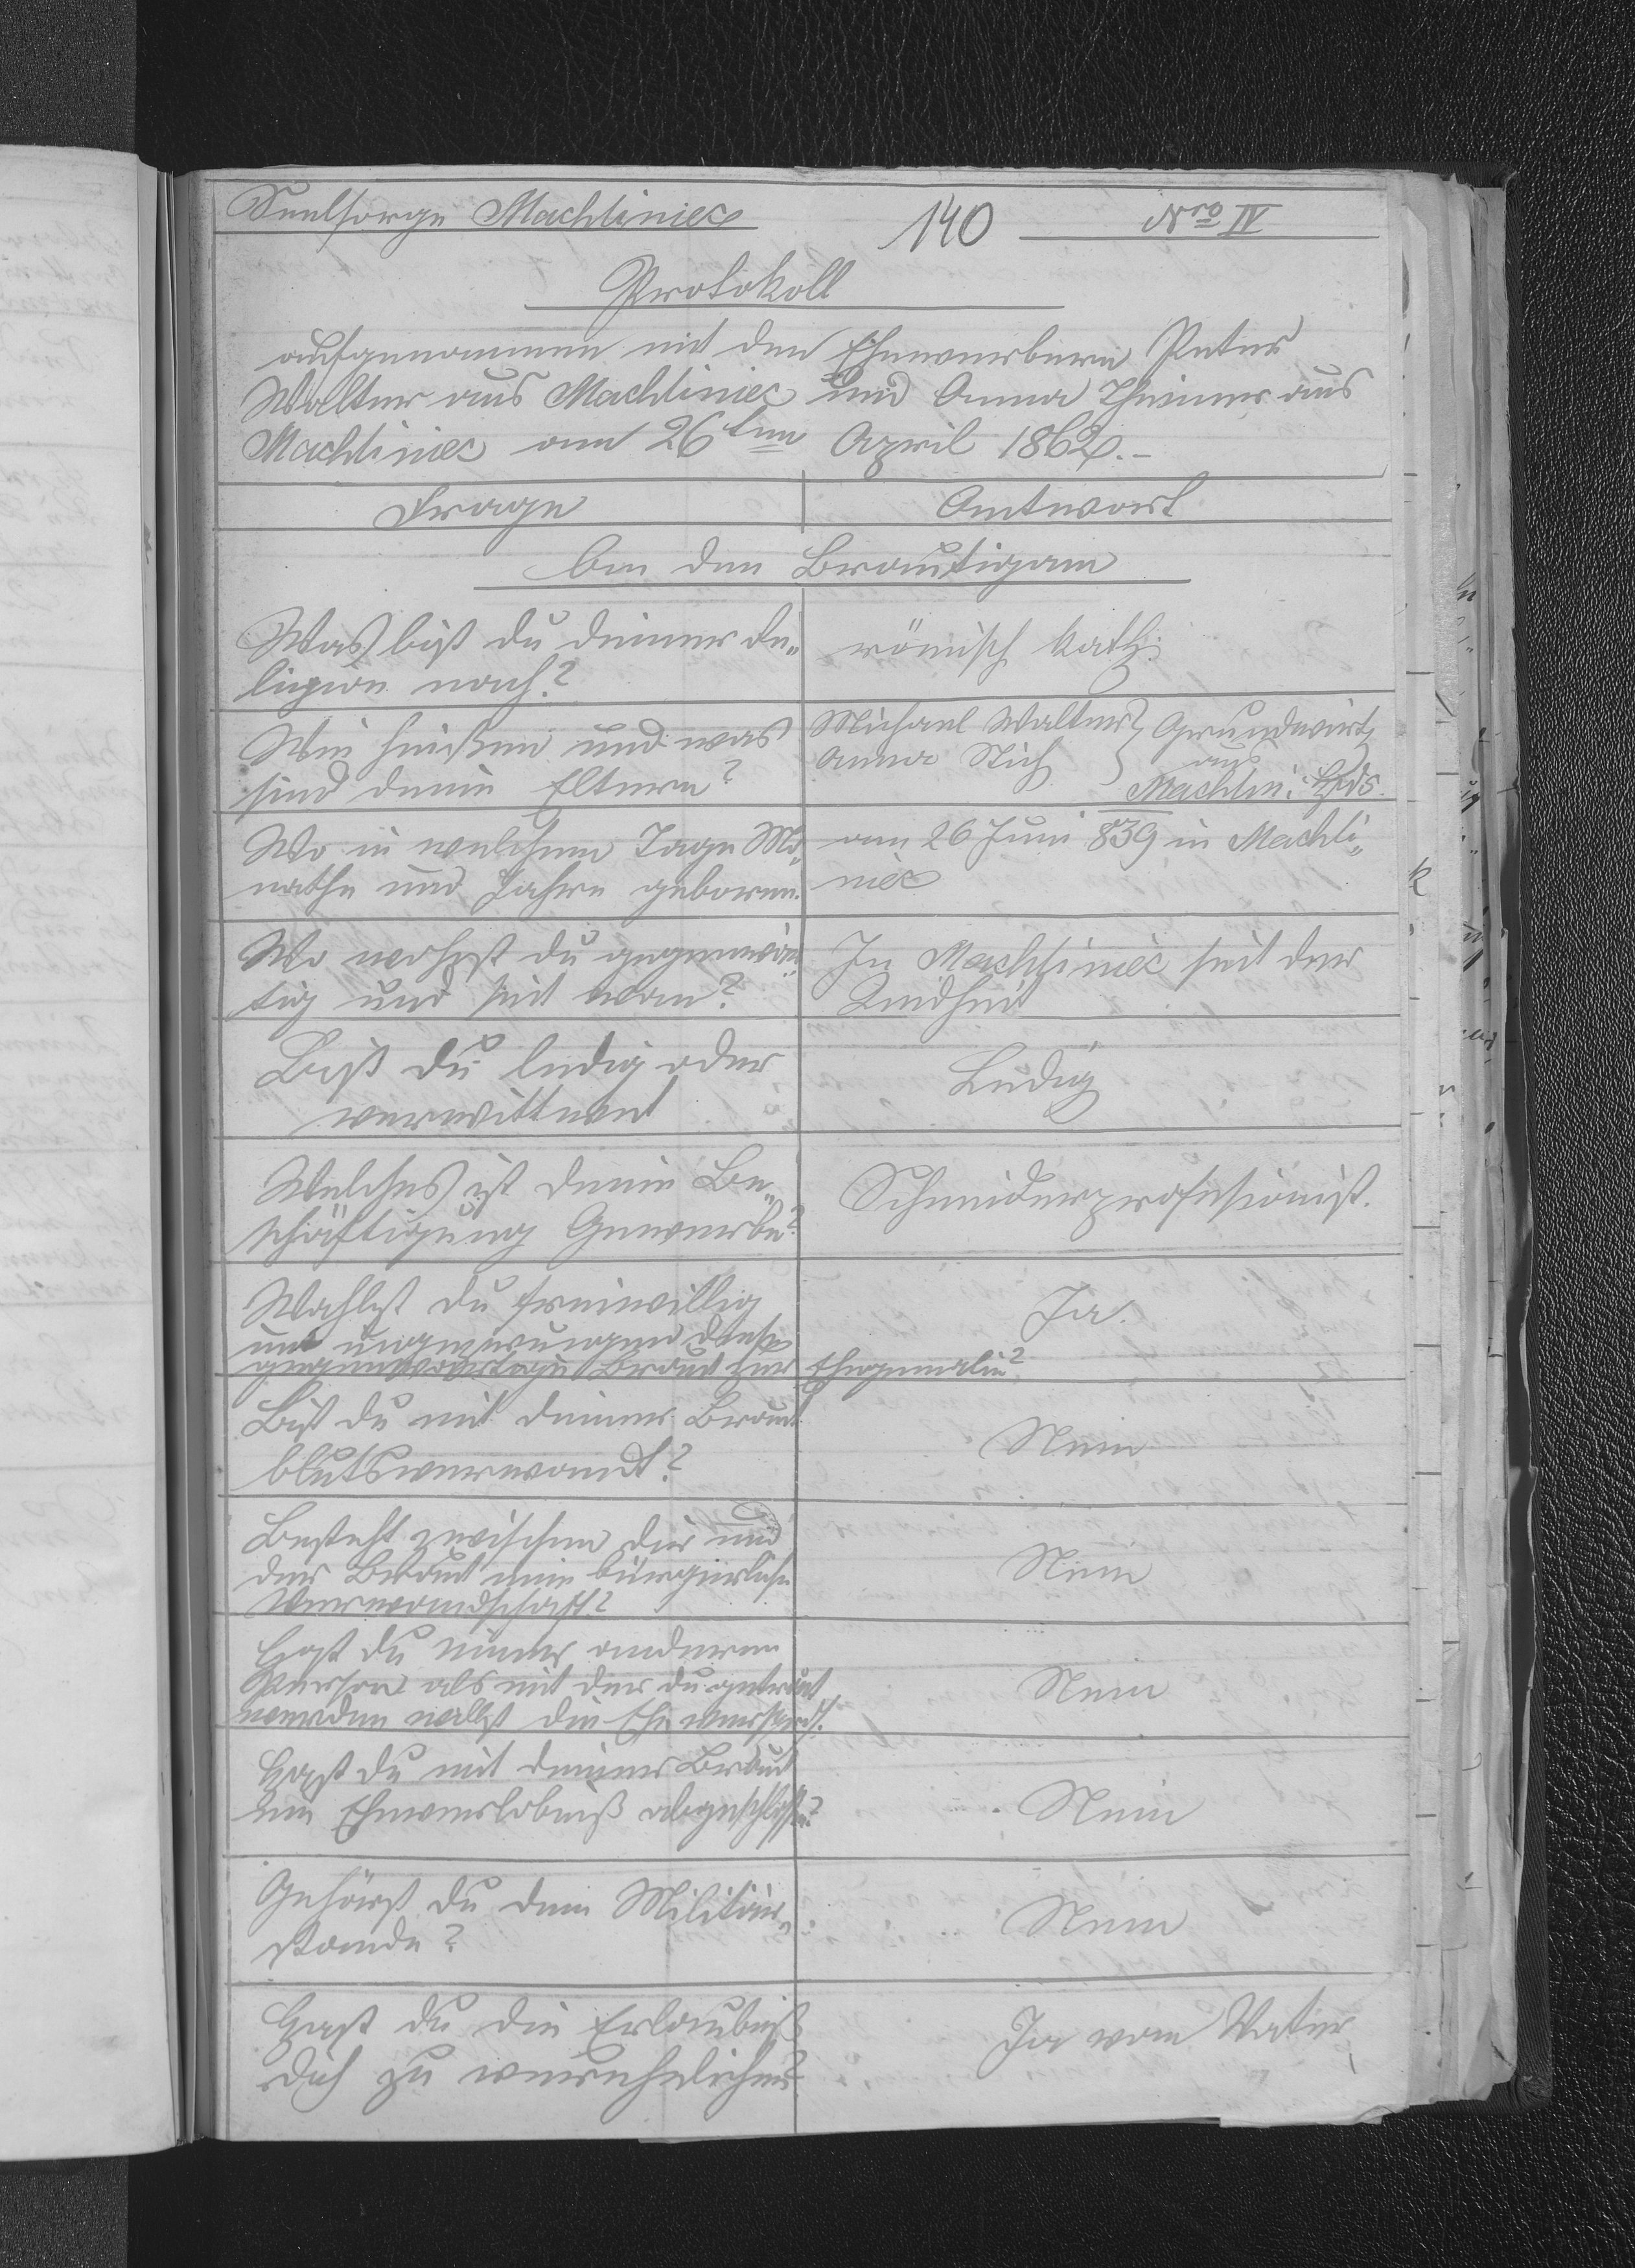 Seelsorge Machliniec
140
Nro IV
Protokoll
aufgenommen mit den Ehewerbern Peter
Walter aus Machliniec und Anna Theiner aus
Machliniec am 26ten April 1862.-
Frage
Antwort
An den Brautigam
Was bist du deiner Re„
ligion nach?
römisch kath:
Wie heißen und was
sind deine Eltern?
Michael Walter } Grundwirth
Anna Stich } aus
Machlin:
Wo in welchem Tage Mo„
nathe und Jahre geboren.
am 26 Juni 839 in Machli„
niec
Wo wohnst du gegenwär„
tig und seit wan?
In Machliniec seit der
Kindheit
Bist du ledig oder
verwittwet
Ledig
Welches ist deine Be„
schäftigung Gewerbe?
Schneiderprofesionist.
Wahlst du freiwillig
und ungezwungen diese
gegenwärtige Braut zur Ehegemalin?
Ja.
Bist du mit deiner Braut
blutsverwandt?
Nein
Besteht zwischen dir und
der Braut eine bürgerliche
Verwandschaft?
Nein
Hast du einer anderen
Person als mit der du getraut
werden willst die Ehe
Nein
Hast du mit deiner Braut
ein Eheverlobniß abgeschlossen?
Nein
Gehörst du dem Militär„
stande?
Nein
Hast du die Erlaubniß
dich zu verehelichen
Ja vom Vater